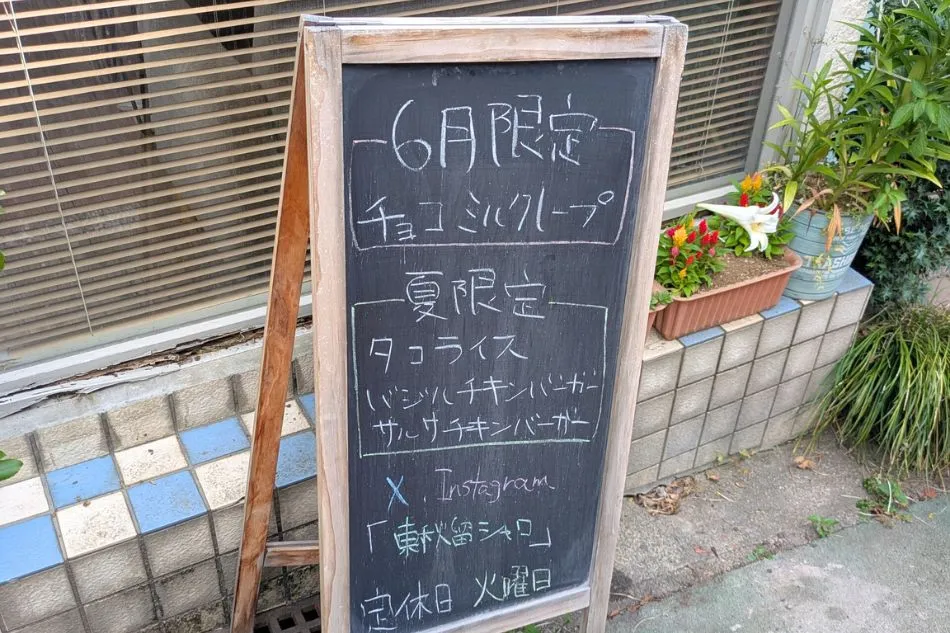 6月限定
チョコミルクレープ
夏限定
タコライス
バジルチキンバーガー
サルサチキンバーガー
X.Instagram
「東秋留シャロ」
定休日 火曜日